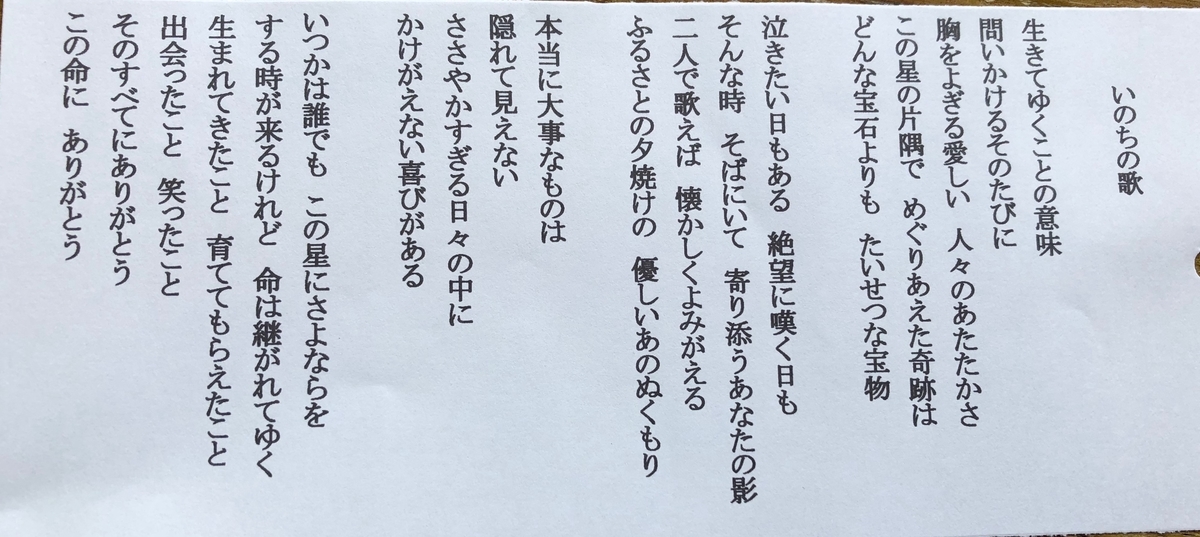 いのちの歌
生きてゆくことの意味
問いかけるそのたびに
胸をよぎる愛しい　人々のあたたかさ
この星の片隅で　めぐりあえた奇跡は
どんな宝石よりも　たいせつな宝物
泣きたい日もある　絶望に嘆く日も
そんな時　そばにいて　寄り添うあなたの影
二人で歌えば　懐かしくよみがえる
ふるさとの夕焼けの　優しいあのぬくもり
本当に大事なものは
隠れて見えない
ささやかすぎる日々の中に
かけがえない喜びがある
いつかは誰でも　この星にさよならを
する時が来るけれど　命は継がれてゆく
生まれてきたこと　育ててもらえたこと
出会ったこと　笑ったこと
そのすべてにありがとう
この命に　ありがとう